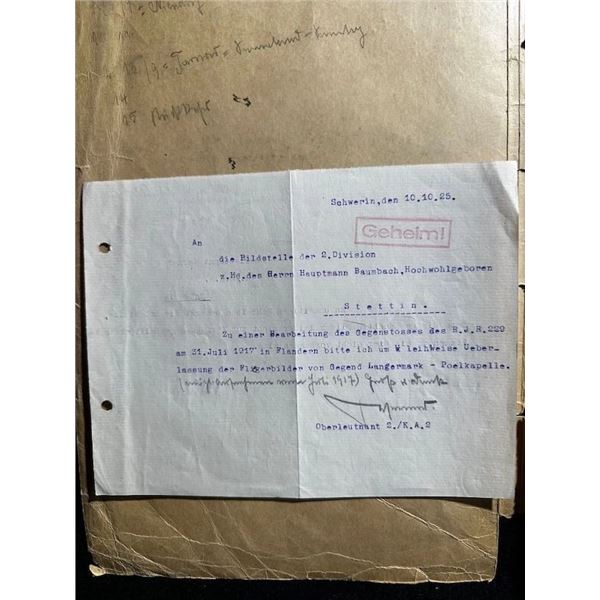 Schwerin,den 10.10.25.
Geheim!
An
die Bildstelle der 2.Division
z.Hd.des Herrn Hauptmann Baumbach,Hochwohlgeboren
Stettin.
Zu einer Bearbeitung des Gegenstosses des R.J.R.229
am 31.Juli 1917 in Flandern bitte ich um leihweise Ueber-
lassung der Fliegerbilder von Gegend Langermark - Poelkapelle.
Juli 1917)
Oberleutnant 2./K.A.2